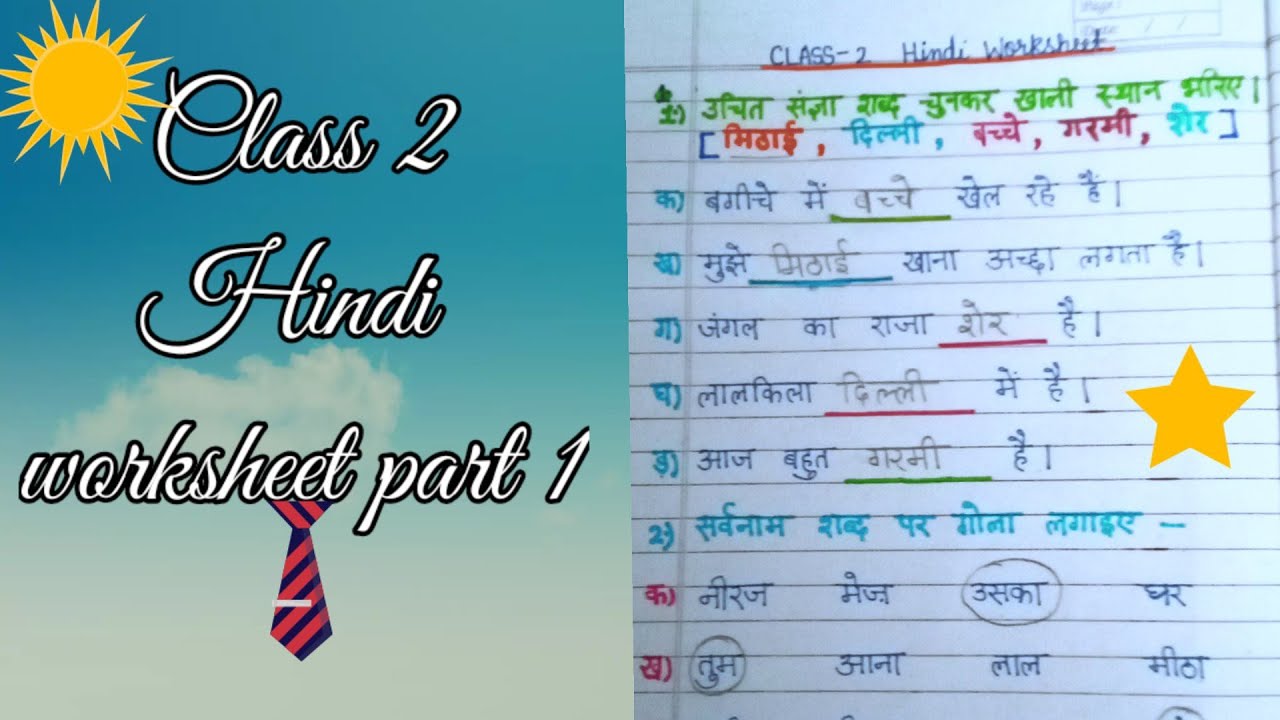 Class 2
Hindi
worksheet part 1
Page:
Date / /
CLASS-2 Hindi Worksheet
1) उचित संज्ञा शब्द चुनकर खाली स्थान भरिए।
[ मिठाई, दिल्ली, बच्चे, गरमी, शेर ]
क) बगीचे में बच्चे खेल रहे हैं।
ख) मुझे मिठाई खाना अच्छा लगता है।
ग) जंगल का राजा शेर है।
घ) लालकिला दिल्ली में है।
ड़) आज बहुत गरमी है।
2) सर्वनाम शब्द पर गोला लगाइए –
क) नीरज मेज़ उसका घर
ख) तुम आना लाल मीठा